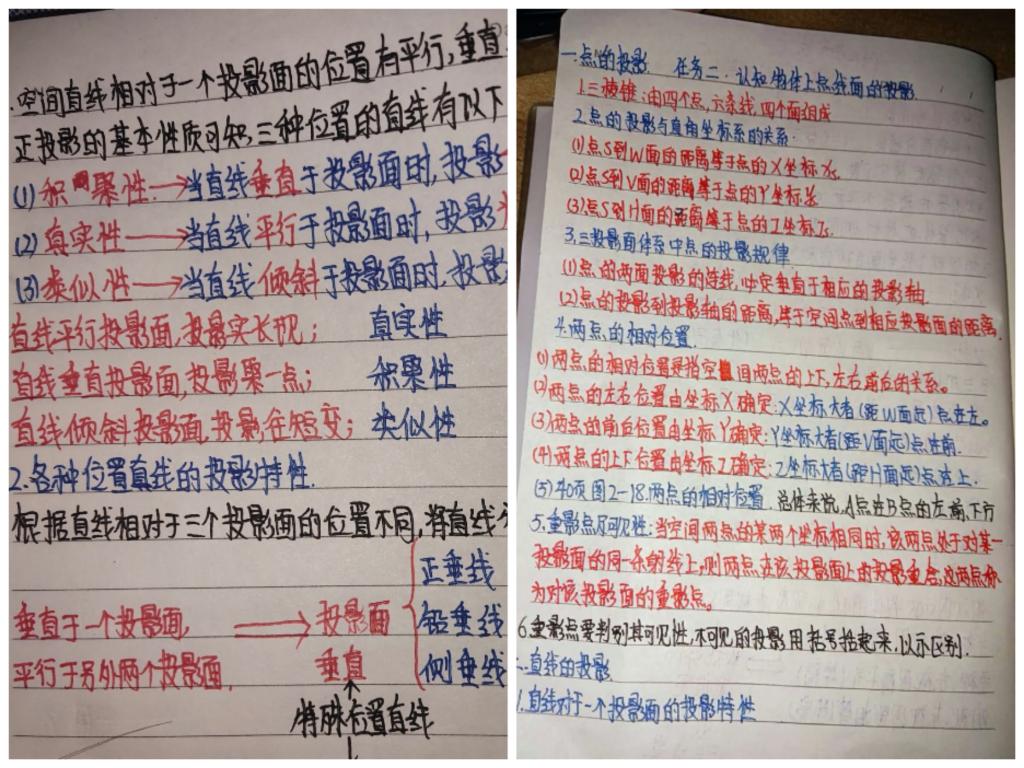 .空间直线相对于一个投影面的位置有平行,垂直
正投影的基本性质可知,三种位置的直线有以下
(1)积聚性→当直线垂直于投影面时,投影
(2)真实性→当直线平行于投影面时,投影
(3)类似性→当直线倾斜于投影面时,投影
直线平行投影面,投影实长现; 真实性
直线垂直投影面,投影聚一点; 积聚性
直线倾斜投影面,投影往短变; 类似性
2.各种位置直线的投影特性.
根据直线相对于三个投影面的位置不同,将直线分
正垂线
垂直于一个投影面, ⇒ 投影面 铅垂线
平行于另外两个投影面. 垂直 侧垂线
特殊位置直线
一.点的投影. 任务二.认知物体上点线面的投影.
1.三棱锥:由四个点,六条线,四个面组成
2.点的投影与直角坐标系的关系.
(1)点S到W面的距离等于点的X坐标
(2)点S到V面的距离等于点的Y坐标
(3)点S到H面的距离等于点的Z坐标
3.三投影面体系中点的投影规律
(1)点的两面投影的连线,必定垂直于相应的投影轴
(2)点的投影到投影轴的距离,等于空间点到相应投影面的距离.
4.两点的相对位置.
(1)两点的相对位置是指空间两点的上下,左右前后的关系。
(2)两点的左右位置由坐标X确定:X坐标大者(距W面远)点在左。
(3)两点的前后位置由坐标Y确定:Y坐标大者(距V面远)点在前.
(4)两点的上下位置由坐标Z确定:Z坐标大者(距H面远)点在上.
(5)40页图2-18.两点的相对位置 总体来说,A点在B点的左、前、下方
5.重影点及可见性:当空间两点的某两个坐标相同时,该两点处于对某一
投影面的同一条射线上,则两点在该投影面上的投影重合,这两点称
为对该投影面的重影点。
6.重影点要判别其可见性,不可见的投影用括号括起来,以示区别.
二.直线的投影
1.直线对于一个投影面的投影特性